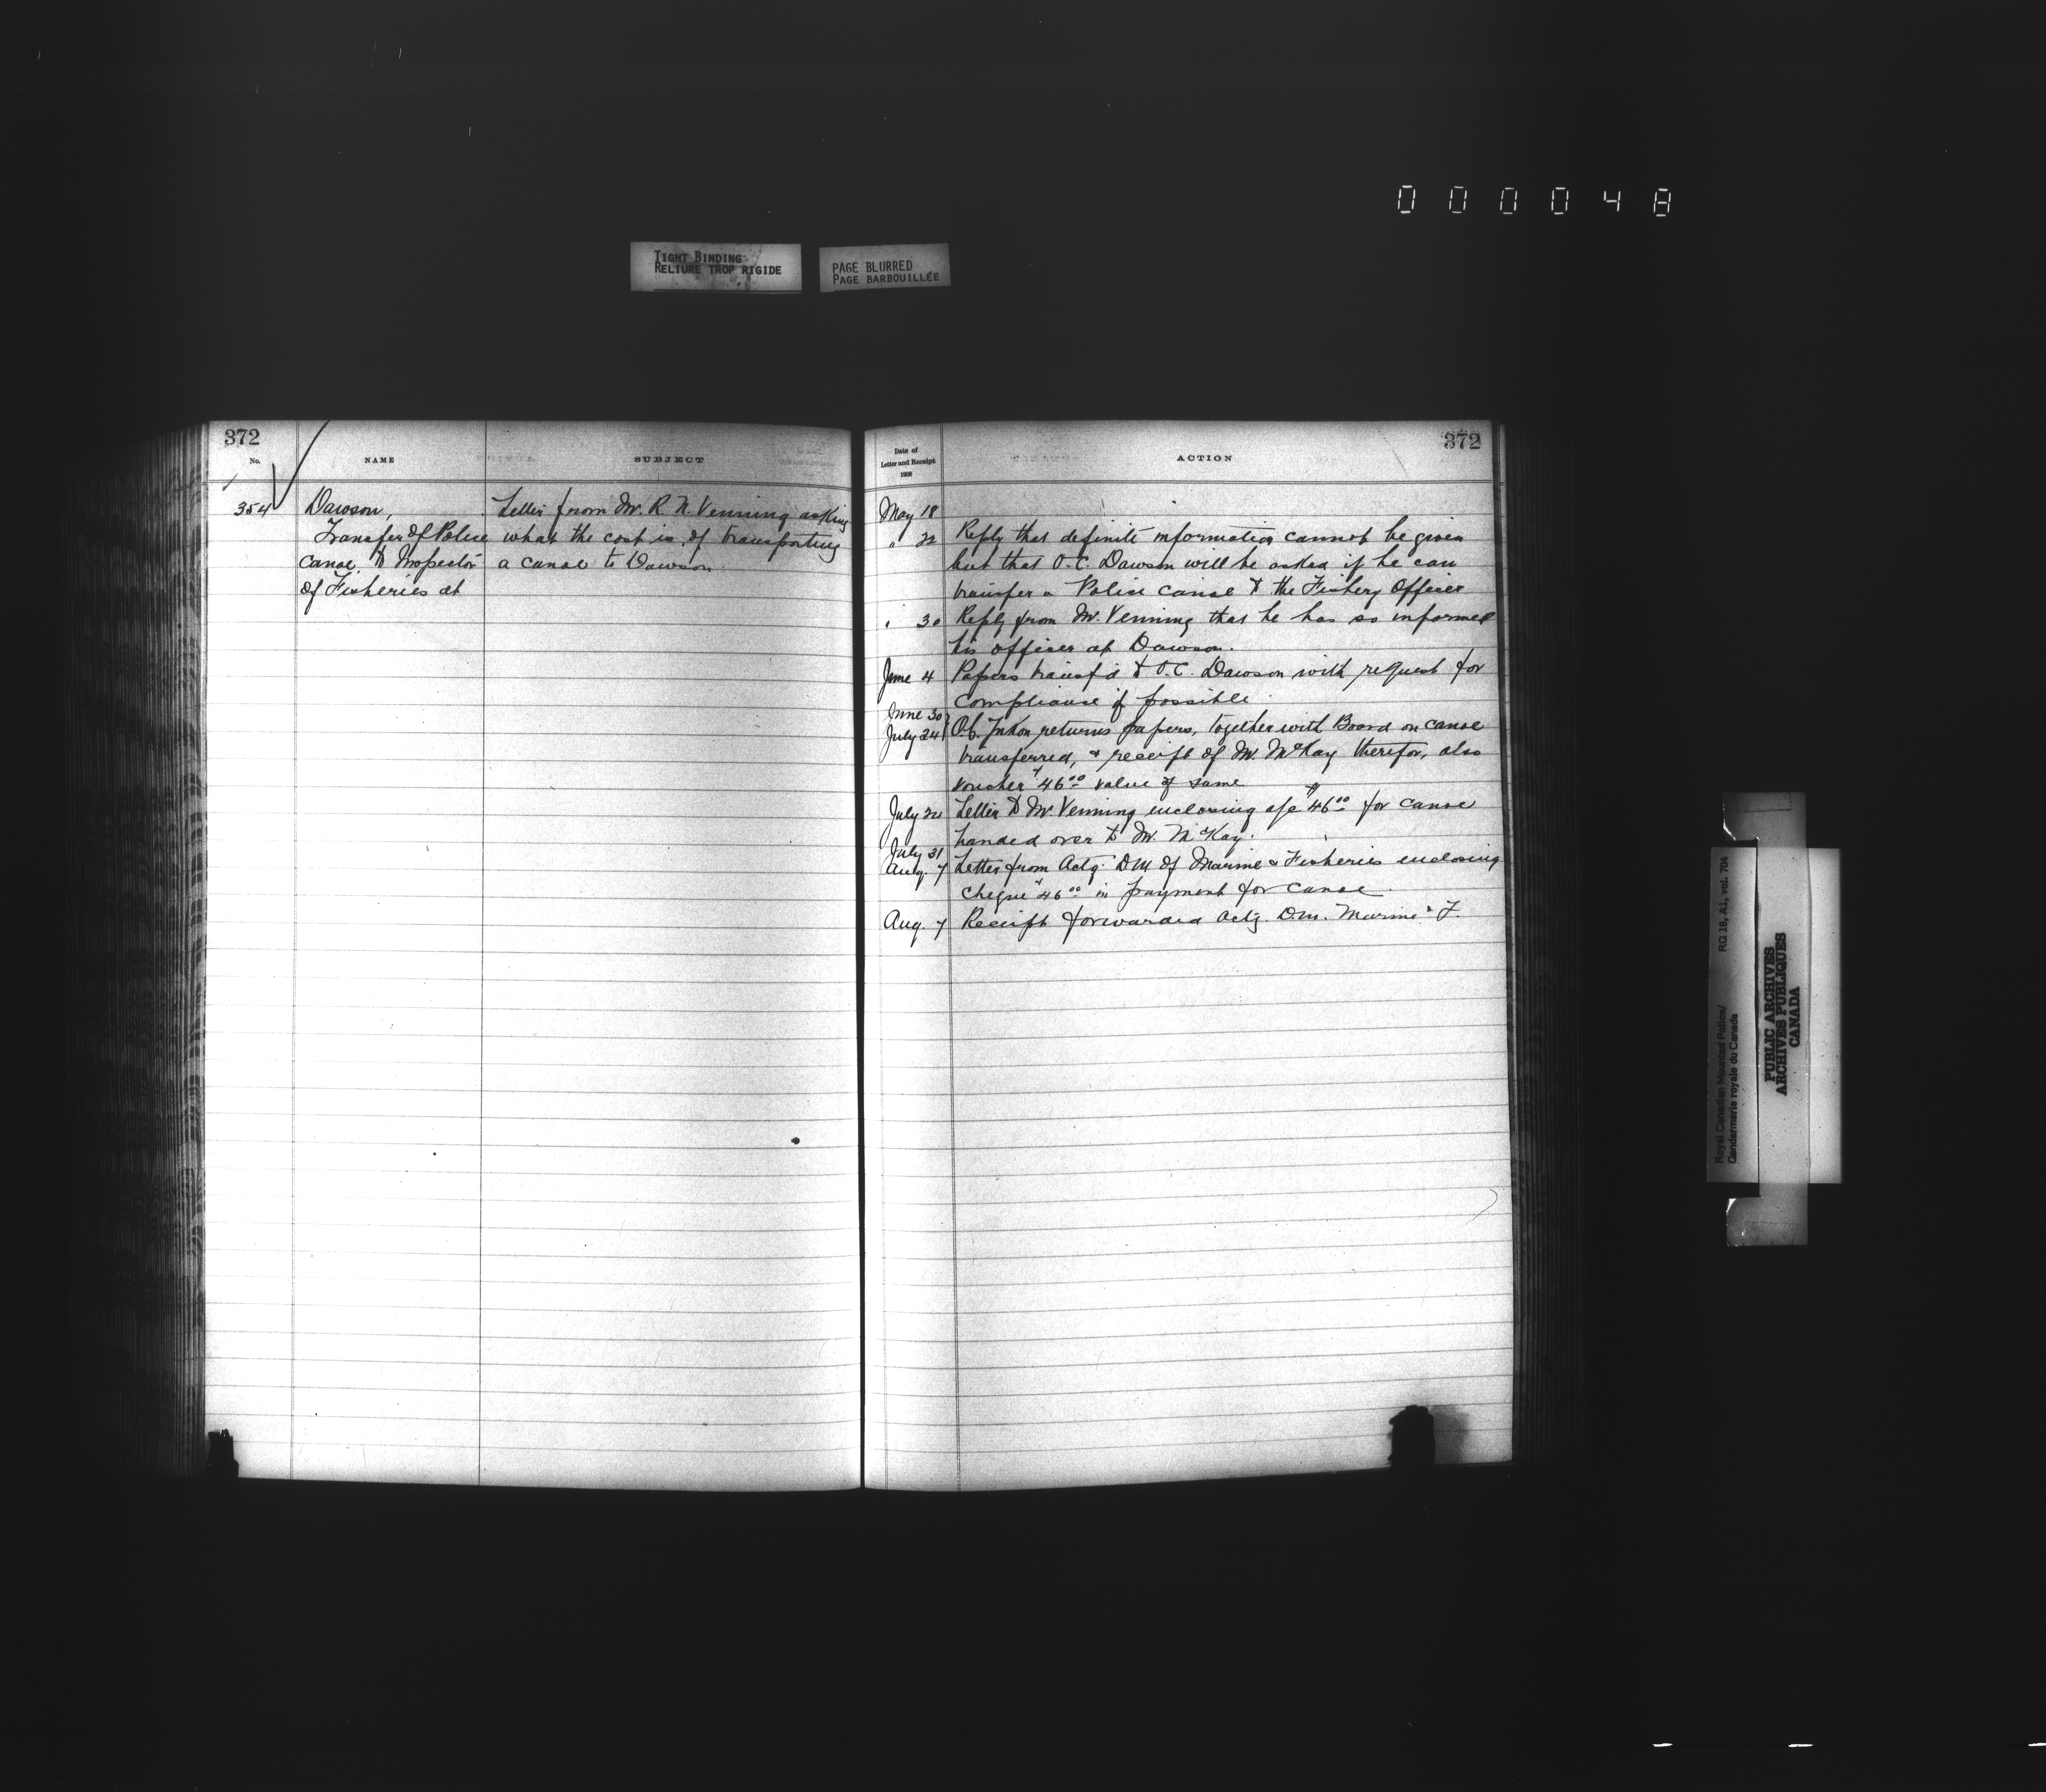 000048
TIGHT BINDING
RELIURE TROP RIGIDE
PAGE BLURRED
PAGE BARBOUILLÉE
372
No.
NAME
SUBJECT
354
Dawson,
Transfer of Police
canoe to Inspector
of Fisheries at
Letter from Mr. R. N. Venning asking
what the cost is of transporting
a canoe to Dawson.
372
Date of
Letter and Receipt
1908
ACTION
May 18
" 22 Reply that definite information cannot be given
but that O.C. Dawson will be asked if he can
transfer a Police canoe to the Fishery Officer
" 30 Reply from Mr. Venning that he has so informed
his officer at Dawson.
June 4 Papers transf'd to O.C. Dawson with request for
compliance if possible
June 30
July 24 O.C. Yukon returns papers, together with Board on canoe
transferred, & receipt of Mr. McKay therefor, also
voucher $46.00 value of same
July 24 Letter to Mr. Venning enclosing a/c $46.00 for canoe
handed over to Mr. McKay.
July 31
Aug. 7 Letter from Actg. D.M. of Marine & Fisheries enclosing
cheque $46.00 in payment for canoe.
Aug. 7 Receipt forwarded Actg. D.M. Marine & F.
Royal Canadian Mounted Police/
Gendarmerie royale du Canada
RG 18, A1, vol. 704
PUBLIC ARCHIVES
ARCHIVES PUBLIQUES
CANADA